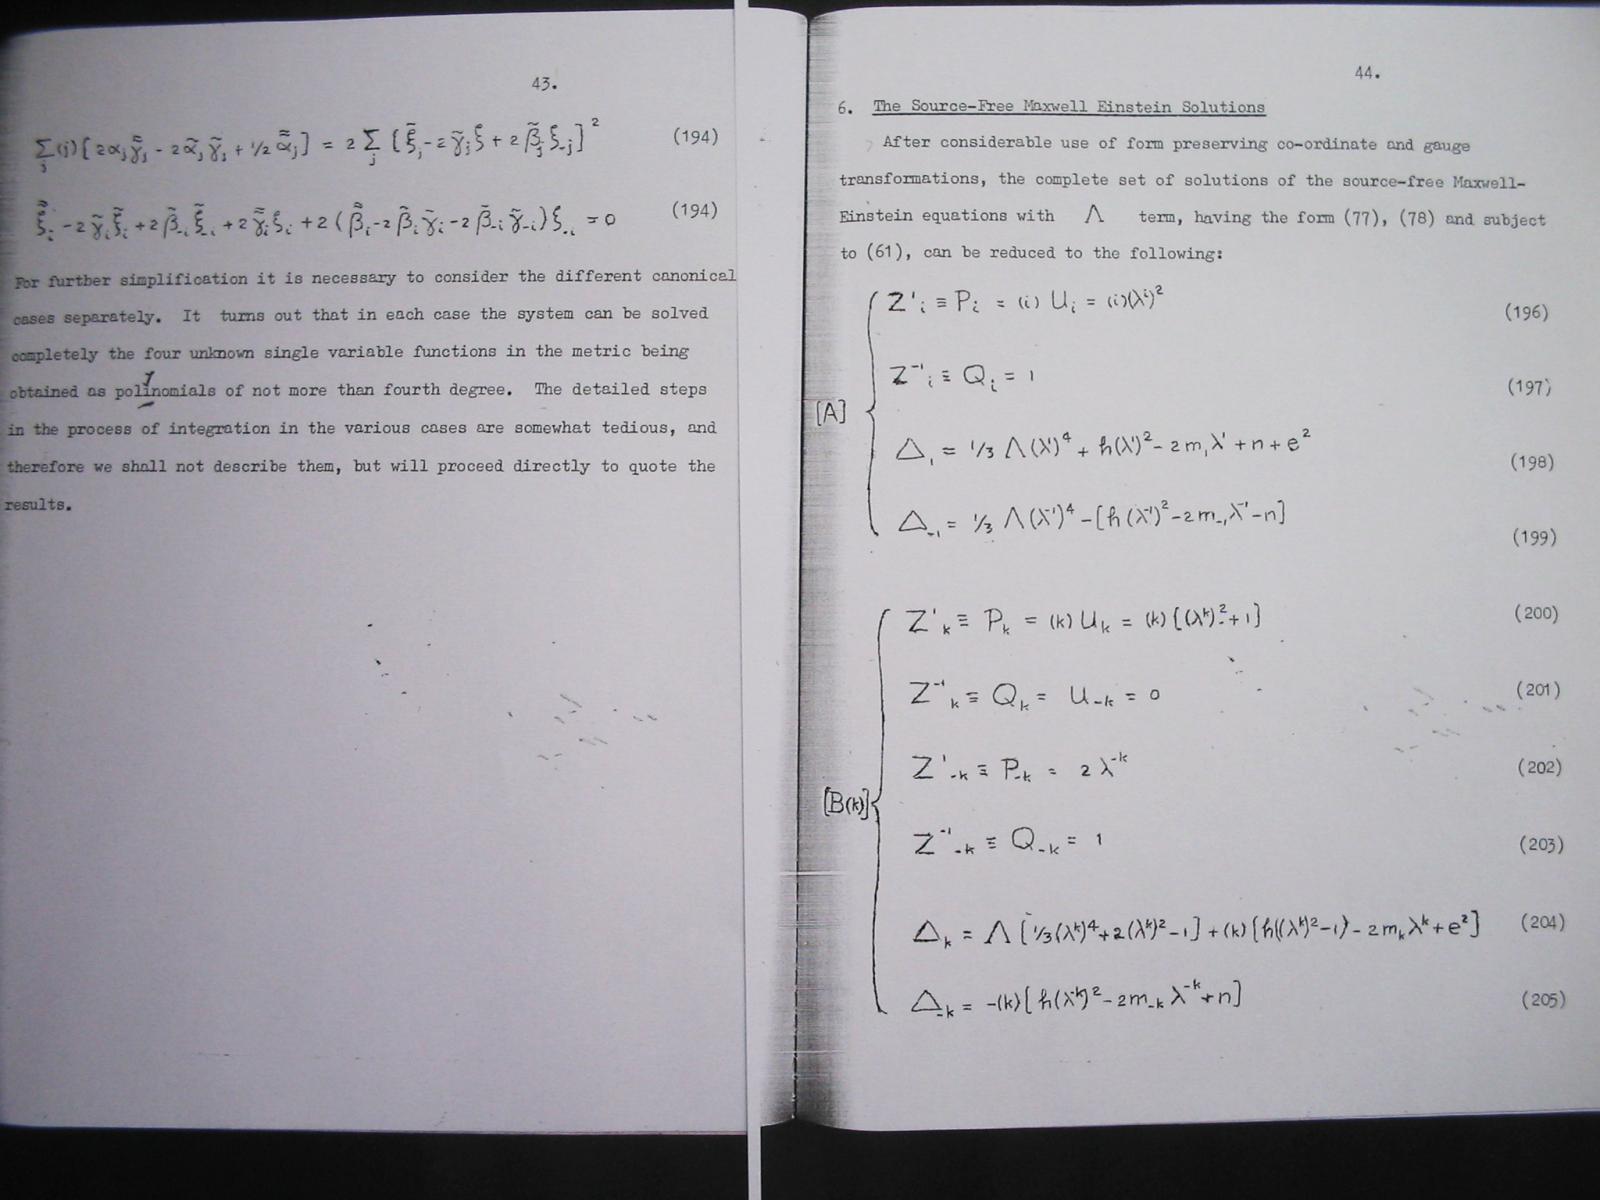 43.
∑_j (j)[2α_j γ̃̃_j - 2α̃_j γ̃_j + 1/2 α̃̃_j] = 2 ∑_j [ξ̃_j - 2 γ̃_j ξ + 2 β̃_j ξ_-j]² (194)
ξ̃̃_i - 2 γ̃_i ξ̃_i + 2 β̃_-i ξ̃_-i + 2 γ̃̃_i ξ_i + 2 (β̃̃_i - 2 β̃_i γ̃_i - 2 β̃_-i γ̃_-i) ξ_-i = 0 (194)
For further simplification it is necessary to consider the different canonical
cases separately. It turns out that in each case the system can be solved
completely the four unknown single variable functions in the metric being
obtained as polynomials of not more than fourth degree. The detailed steps
in the process of integration in the various cases are somewhat tedious, and
therefore we shall not describe them, but will proceed directly to quote the
results.
44.
6. The Source-Free Maxwell Einstein Solutions
After considerable use of form preserving co-ordinate and gauge
transformations, the complete set of solutions of the source-free Maxwell-
Einstein equations with Λ term, having the form (77), (78) and subject
to (61), can be reduced to the following:
[A]
Z'_i ≡ P_i = (i) U_i = (i)(λ^i)² (196)
Z^-1_i ≡ Q_i = 1 (197)
Δ_1 = 1/3 Λ(λ')⁴ + h(λ')² - 2m_1 λ' + n + e² (198)
Δ_-1 = 1/3 Λ(λ^-1)⁴ - [h(λ^-1)² - 2m_-1 λ^-1 - n] (199)
[B(k)]
Z'_k ≡ P_k = (k) U_k = (k)[(λ^k)² + 1] (200)
Z^-1_k ≡ Q_k = U_-k = 0 (201)
Z'_-k ≡ P_-k = 2 λ^-k (202)
Z^-1_-k ≡ Q_-k = 1 (203)
Δ_k = Λ [1/3(λ^k)⁴ + 2(λ^k)² - 1] + (k)[h((λ^k)² - 1) - 2m_k λ^k + e²] (204)
Δ_-k = -(k)[h(λ^-k)² - 2m_-k λ^-k + n] (205)